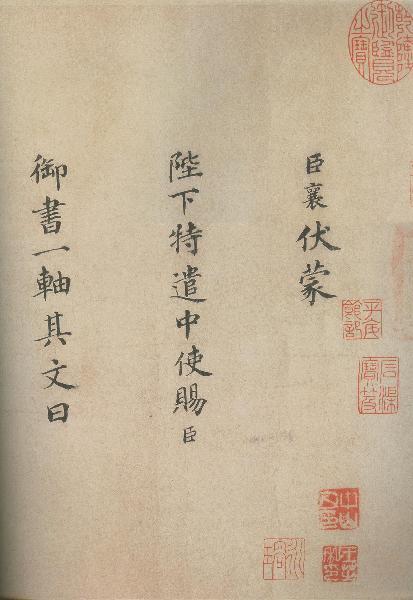 臣襄伏蒙
陛下特遣中使賜臣
御書一軸其文曰